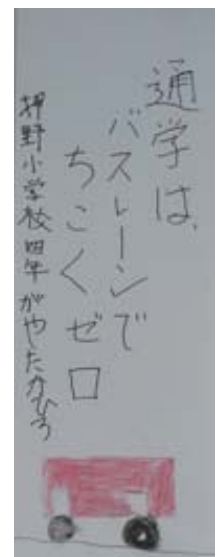 通学は、
バスレーンで
ちこくゼロ
押野小学校四年がやたかひろ